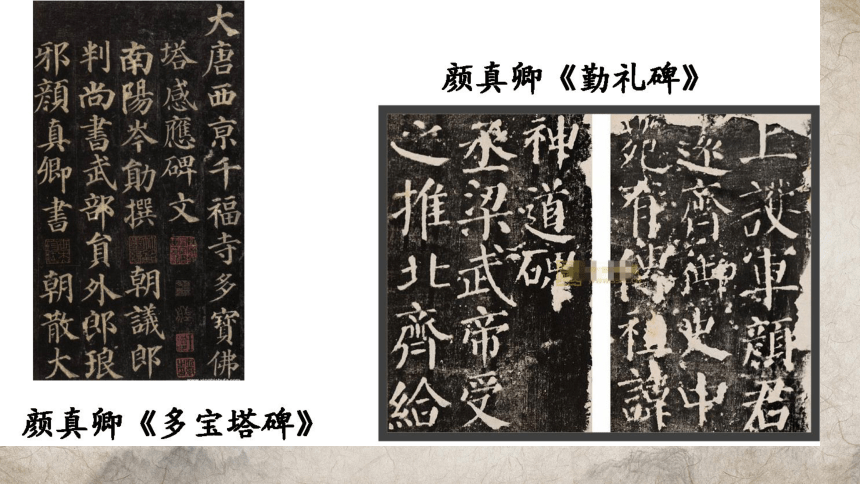 大唐西京千福寺多寶佛
塔感應碑文
南陽岑勛撰 朝議郎
判尚書武部員外郎琅
邪顏真卿書 朝散大
颜真卿《多宝塔碑》
颜真卿《勤礼碑》
上護軍顏君
遠齊御史中
苑有傳祖諱
神道碑
丞梁武帝受
之推北齊給